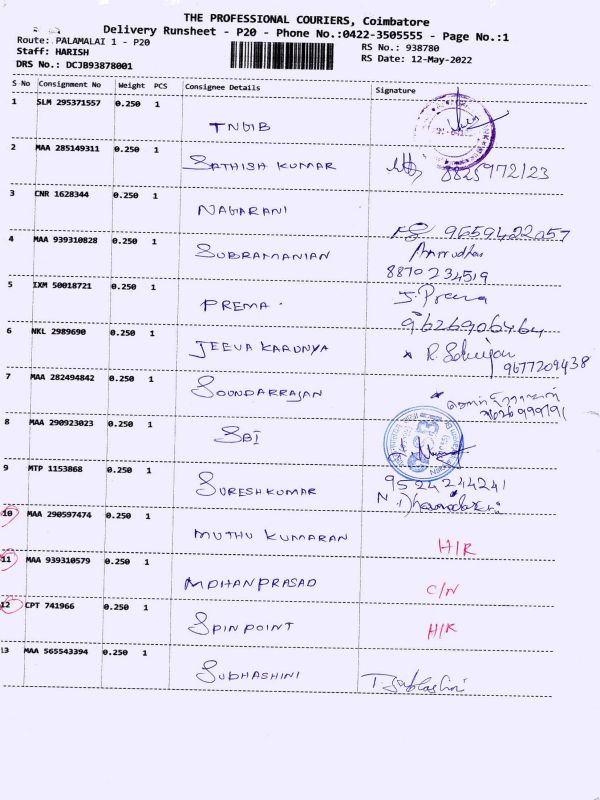 THE PROFESSIONAL COURIERS, Coimbatore
Delivery Runsheet - P20 - Phone No.:0422-3505555 - Page No.:1
Route: PALAMALAI 1 - P20
RS No.: 938780
Staff: HARISH
RS Date: 12-May-2022
DRS No.: DCJB93878001
S No Consignment No Weight PCS Consignee Details Signature
1 SLM 295371557 0.250 1
TNGIB
2 MAA 285149311 0.250 1
SATHISH KUMAR 8825972123
3 CNR 1628344 0.250 1
NAGARANI 9659422057
4 MAA 939310828 0.250 1
SUBRAMANIAN
8870234519
5 IXM 50018721 0.250 1
PREMA J. Prema
6 NKL 2989690 0.250 1
JEEVA KARUNYA
9677209438
7 MAA 282494842 0.250 1
SOUNDARRAJAN
8 MAA 290923023 0.250 1
SBI
9 MTP 1153868 0.250 1
SURESHKUMAR 9524244241
10 MAA 290597474 0.250 1
MUTHU KUMARAN H/R
11 MAA 939310579 0.250 1
MOHANPRASAD C/N
12 CPT 741966 0.250 1
SPINPOINT H/R
13 MAA 565543394 0.250 1
SUBHASHINI